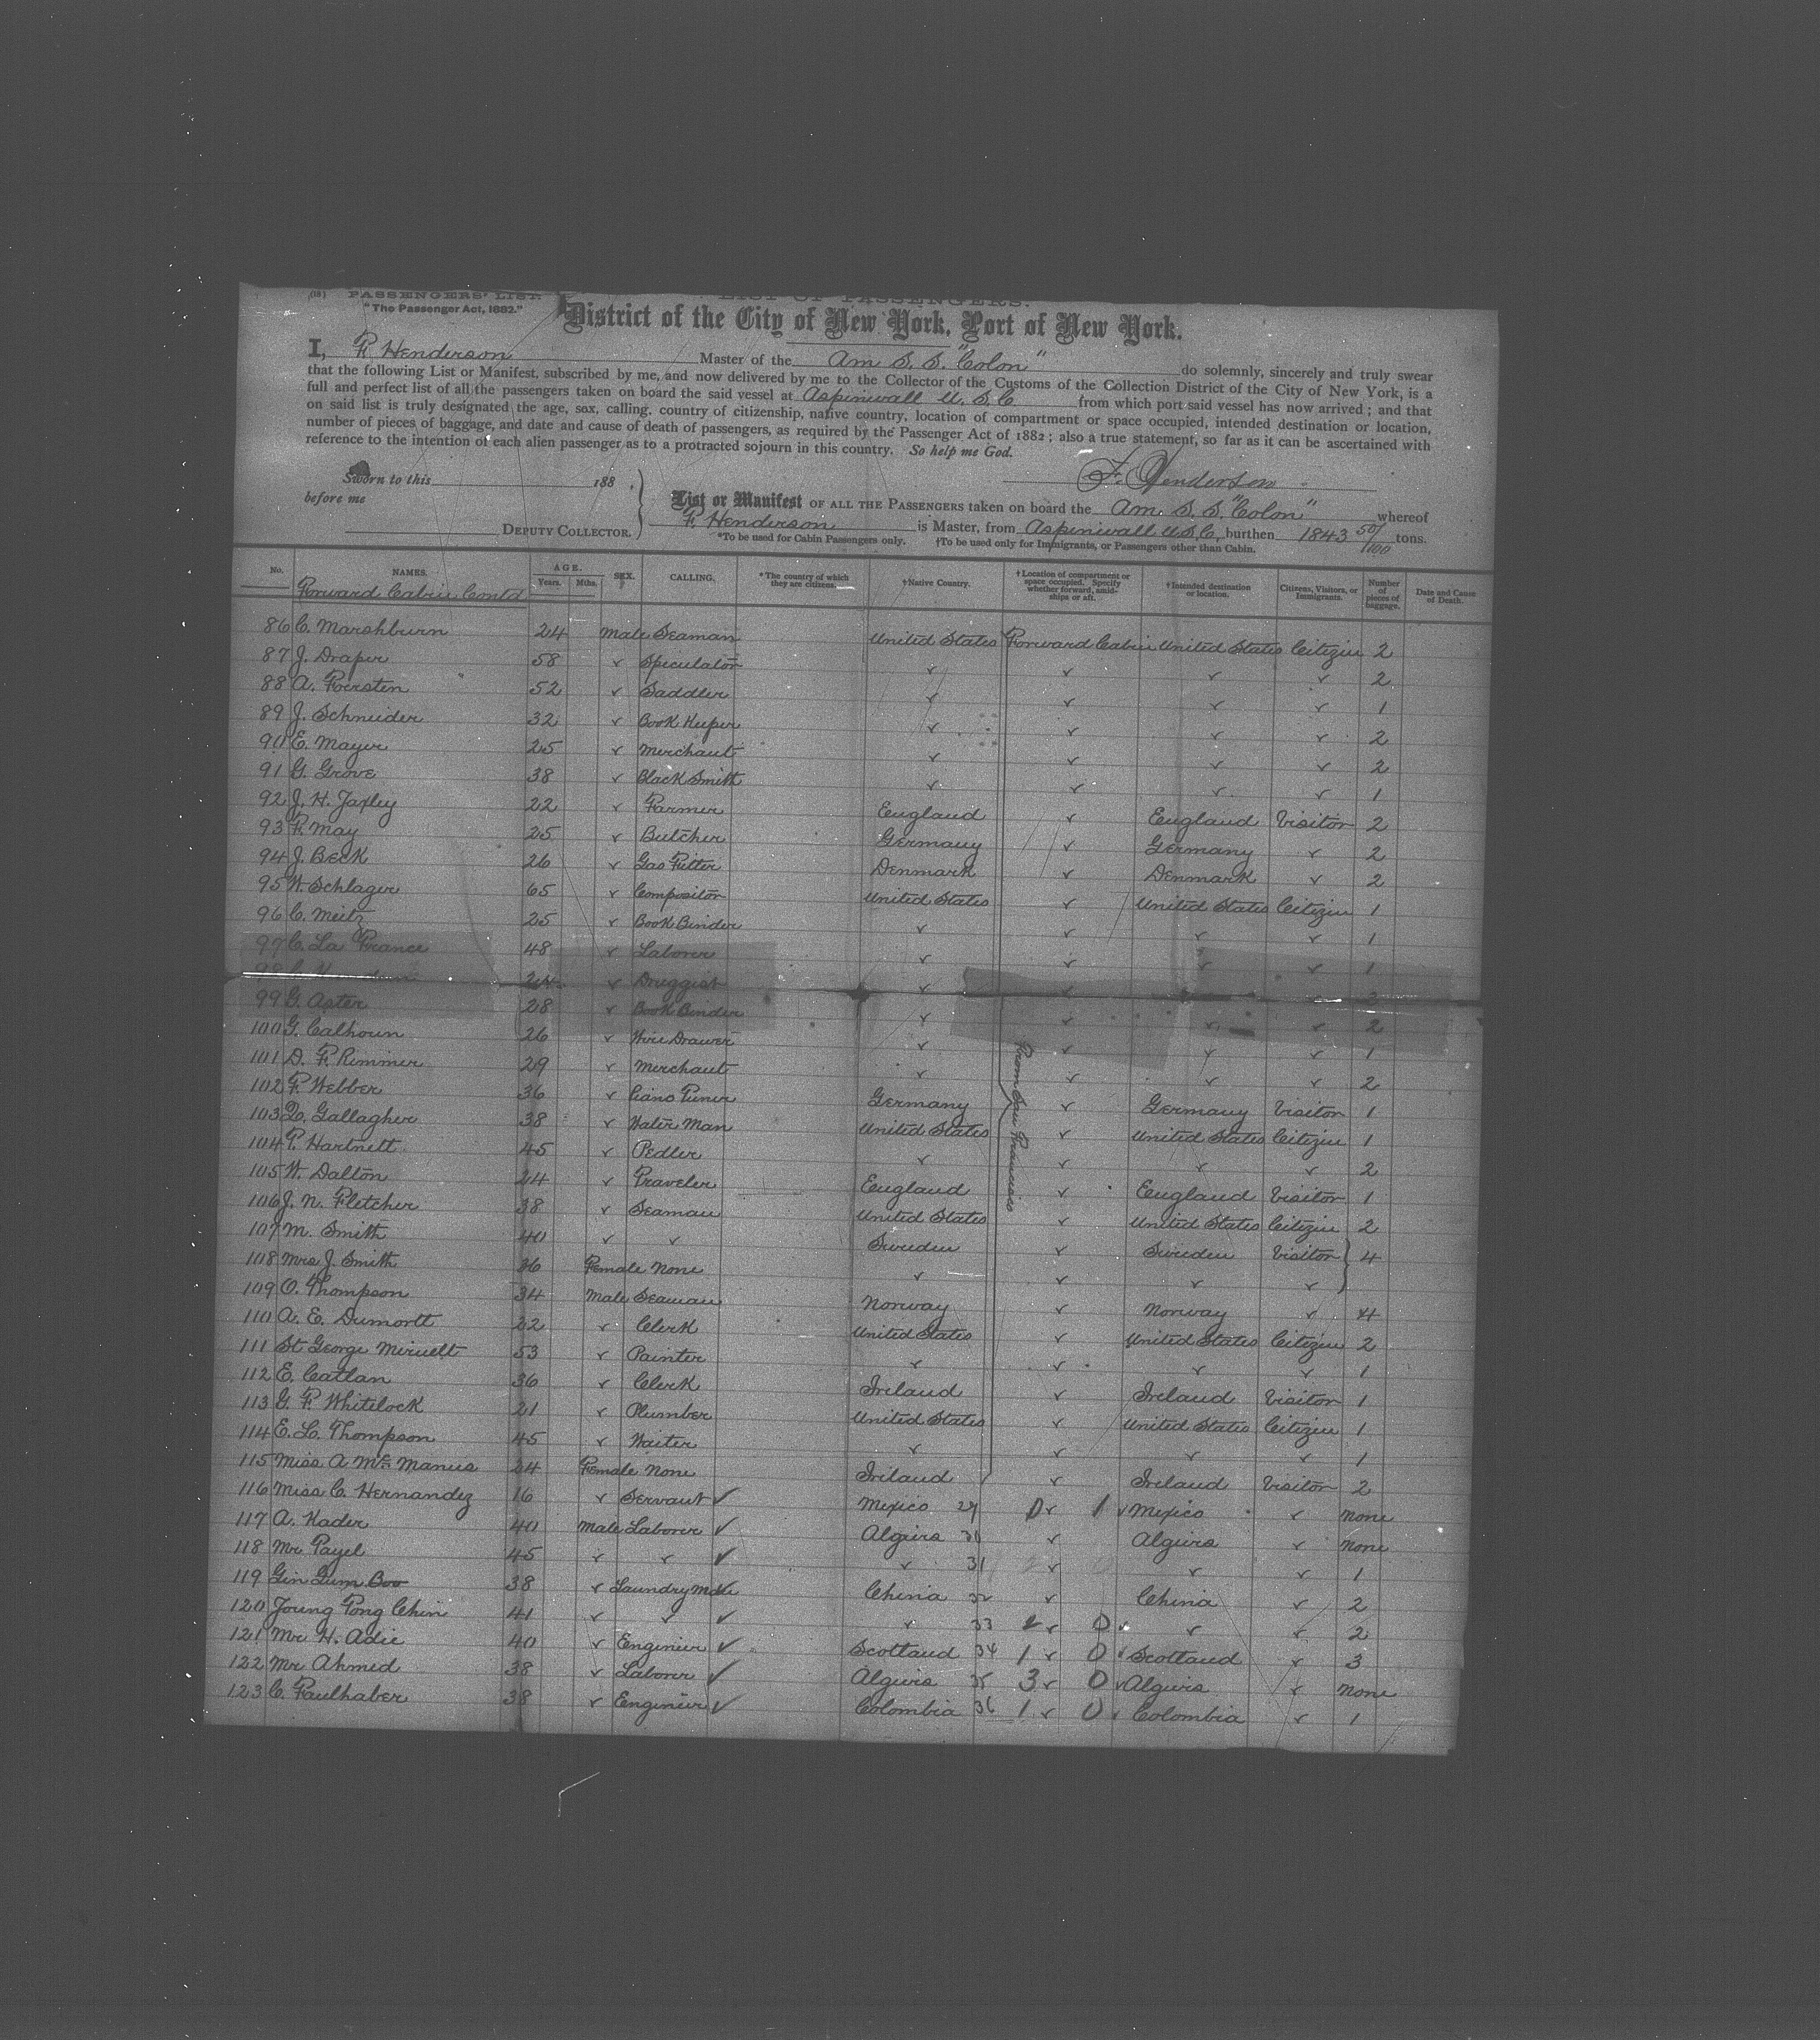 (18) PASSENGERS' LIST. LIST OF PASSENGERS.
"The Passenger Act, 1882."
District of the City of New York, Port of New York.
I, F. Henderson Master of the Am S. S. "Colon" do solemnly, sincerely and truly swear
that the following List or Manifest, subscribed by me, and now delivered by me to the Collector of the Customs of the Collection District of the City of New York, is a
full and perfect list of all the passengers taken on board the said vessel at Aspinwall U. S. C from which port said vessel has now arrived; and that
on said list is truly designated the age, sex, calling, country of citizenship, native country, location of compartment or space occupied, intended destination or location,
number of pieces of baggage, and date and cause of death of passengers, as required by the Passenger Act of 1882; also a true statement, so far as it can be ascertained with
reference to the intention of each alien passenger as to a protracted sojourn in this country. So help me God.
Sworn to this 188 . F. Henderson
before me
List or Manifest OF ALL THE PASSENGERS taken on board the Am. S. S. "Colon" whereof
DEPUTY COLLECTOR. F. Henderson is Master, from Aspinwall U.S.C. burthen 1843 50/100 tons.
*To be used for Cabin Passengers only. †To be used only for Immigrants, or Passengers other than Cabin.
No. NAMES. AGE. Years. Mths. SEX. CALLING. *The country of which they are citizens. †Native Country. †Location of compartment or space occupied. Specify whether forward, amidships or aft. †Intended destination or location. Citizens, Visitors, or Immigrants. Number of pieces of baggage. Date and Cause of Death.
Forward Cabin Contd
86 C. Marshburn 24 Male Seaman United States Forward Cabin United States Citizen 2
87 J. Draper 58 ✓ Speculator ✓ ✓ ✓ ✓ 2
88 A. Foersten 52 ✓ Saddler ✓ ✓ ✓ ✓ 1
89 J. Schneider 32 ✓ Book Keeper ✓ ✓ ✓ ✓ 2
90 E. Mayer 25 ✓ Merchant ✓ ✓ ✓ ✓ 2
91 G. Grove 38 ✓ Black Smith ✓ ✓ ✓ ✓ 1
92 J. H. Jaxley 22 ✓ Farmer England ✓ England Visitor 2
93 F. May 25 ✓ Butcher Germany ✓ Germany ✓ 2
94 J. Beck 26 ✓ Gas Fitter Denmark ✓ Denmark ✓ 2
95 W. Schlager 65 ✓ Compositor United States ✓ United States Citizen 1
96 C. Meitz 25 ✓ Book Binder ✓ ✓ ✓ ✓ 1
97 C. La France 48 ✓ Laborer ✓ ✓ ✓ ✓ 1
24 ✓ Druggist ✓ ✓ 2
99 G. Aster 28 ✓ Book Binder ✓ ✓ ✓ ✓ 2
100 G. Calhoun 26 ✓ Wire Drawer ✓ ✓ ✓ ✓ 1
101 D. F. Rimmer 29 ✓ Merchant ✓ ✓ ✓ ✓ 2
102 F. Webber 36 ✓ Piano Tuner Germany ✓ Germany Visitor 1
103 D. Gallagher 38 ✓ Water Man United States ✓ United States Citizen 1
104 P. Hartnett 45 ✓ Pedler ✓ ✓ ✓ ✓ 2
105 W. Dalton 24 ✓ Traveler England ✓ England Visitor 1
106 J. N. Fletcher 38 ✓ Seaman United States ✓ United States Citizen 2
107 M. Smith 40 ✓ ✓ Sweden ✓ Sweden Visitor 4
108 Mrs J. Smith 36 Female None ✓ ✓ ✓ ✓
109 O. Thompson 34 Male Seaman Norway ✓ Norway ✓ 4
110 A. E. Dumortt 22 ✓ Clerk United States ✓ United States Citizen 2
111 St George Miruelt 53 ✓ Painter ✓ ✓ ✓ ✓ 1
112 E. Catlan 36 ✓ Clerk Ireland ✓ Ireland Visitor 1
113 G. F. Whitelock 21 ✓ Plumber United States ✓ United States Citizen 1
114 E. L. Thompson 45 ✓ Waiter ✓ ✓ ✓ ✓ 1
115 Miss A McManus 24 Female None Ireland ✓ Ireland Visitor 2
From San Francisco
116 Miss C. Hernandez 16 ✓ Servant ✓ Mexico 29 0 ✓ 1 ✓ Mexico ✓ None
117 A. Kader 40 Male Laborer ✓ Algiers 30 ✓ Algiers ✓ None
118 Mr Payel 45 ✓ ✓ ✓ ✓ 31 ✓ ✓ ✓ 1
119 Gin Gum Boo 38 ✓ Laundry Man ✓ China 32 ✓ China ✓ 2
120 Joung Pong Chin 41 ✓ ✓ ✓ ✓ 33 2 ✓ 0 ✓ ✓ ✓ 2
121 Mr H. Adie 40 ✓ Engineer ✓ Scotland 34 1 ✓ 0 ✓ Scotland ✓ 3
122 Mr Ahmed 38 ✓ Laborer ✓ Algiers 35 3 ✓ 0 ✓ Algiers ✓ None
123 C. Faulhaber 38 ✓ Engineer ✓ Colombia 36 1 ✓ 0 ✓ Colombia ✓ 1